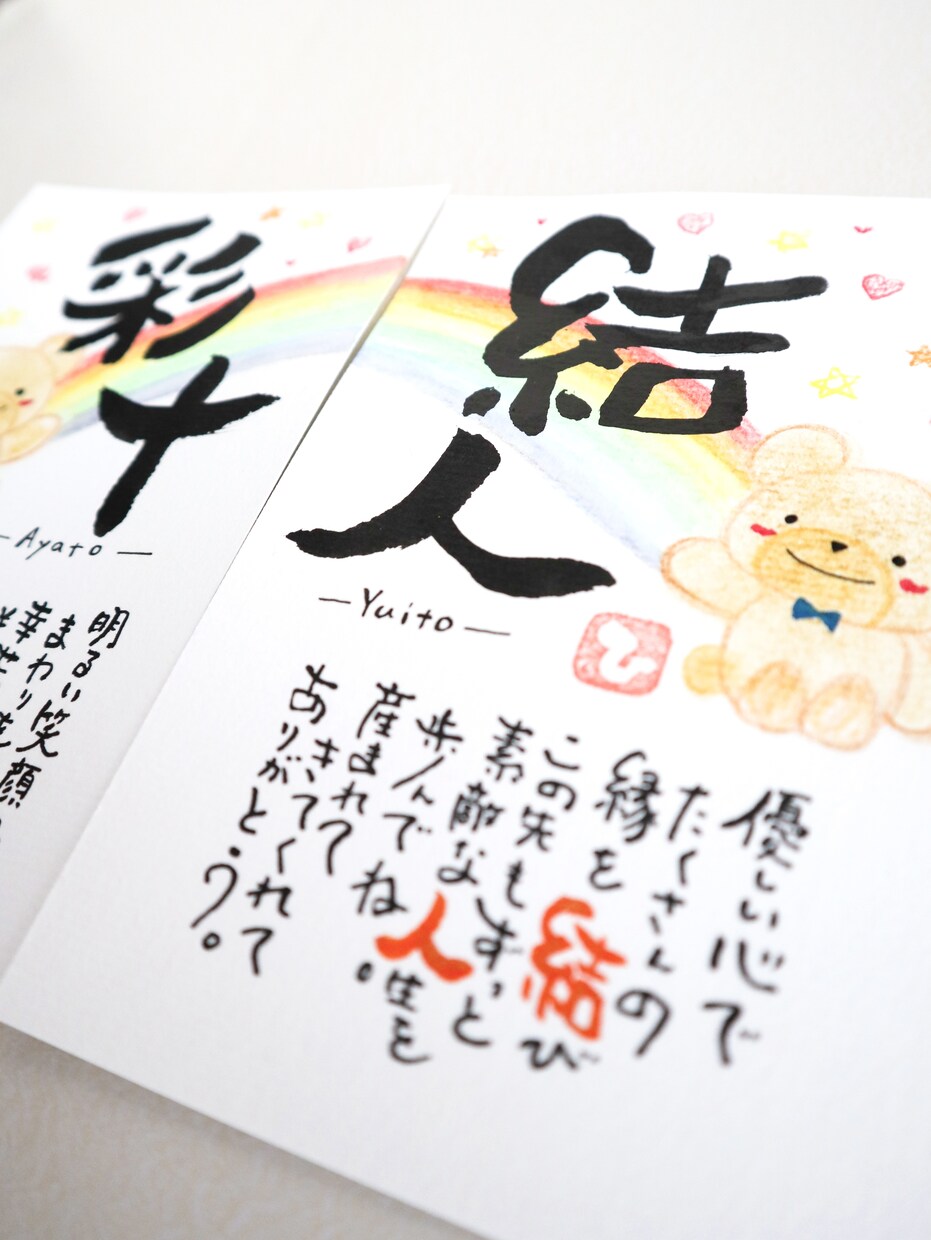 結人
—Yuito—
ひ
優しい心で
たくさんの
縁を結び
この先もずっと
素敵な人生を
歩んでね。
産まれて
きてくれて
ありがとう。
彩十
—Ayato—
明るい笑顔
まわり